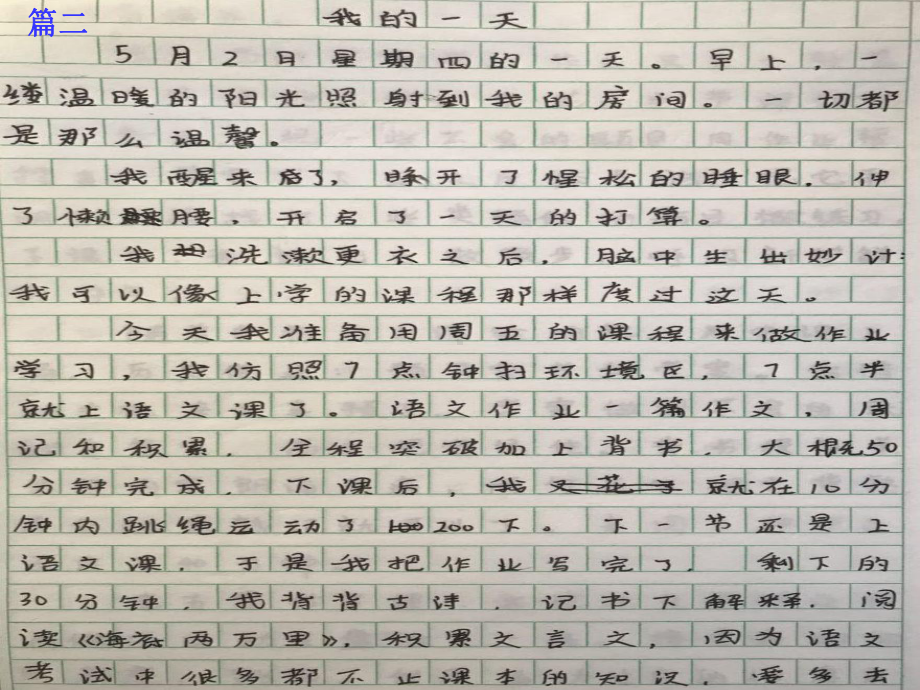 篇二
我的一天
5月2日星期四的一天。早上，一
缕温暖的阳光照射到我的房间。一切都
是那么温馨。
我醒来后了，睁开了惺松的睡眼，伸
了懒腰，开启了一天的打算。
我洗漱更衣之后，脑中生出妙计：
我可以像上学的课程那样度过这天。
今天我准备用周五的课程来做作业
学习，我仿照7点钟扫环境区，7点半
就上语文课了。语文作业一篇作文，周
记和积累，全程突破加上背书，大概50
分钟完成，下课后，我又花了就在10分
钟内跳绳运动了200下。下一节还是上
语文课，于是我把作业写完了，剩下的
30分钟，我背背古诗，记书下解释，阅
读《海底两万里》，积累文言文，因为语文
考试中很多都不止课本的知识，要多去